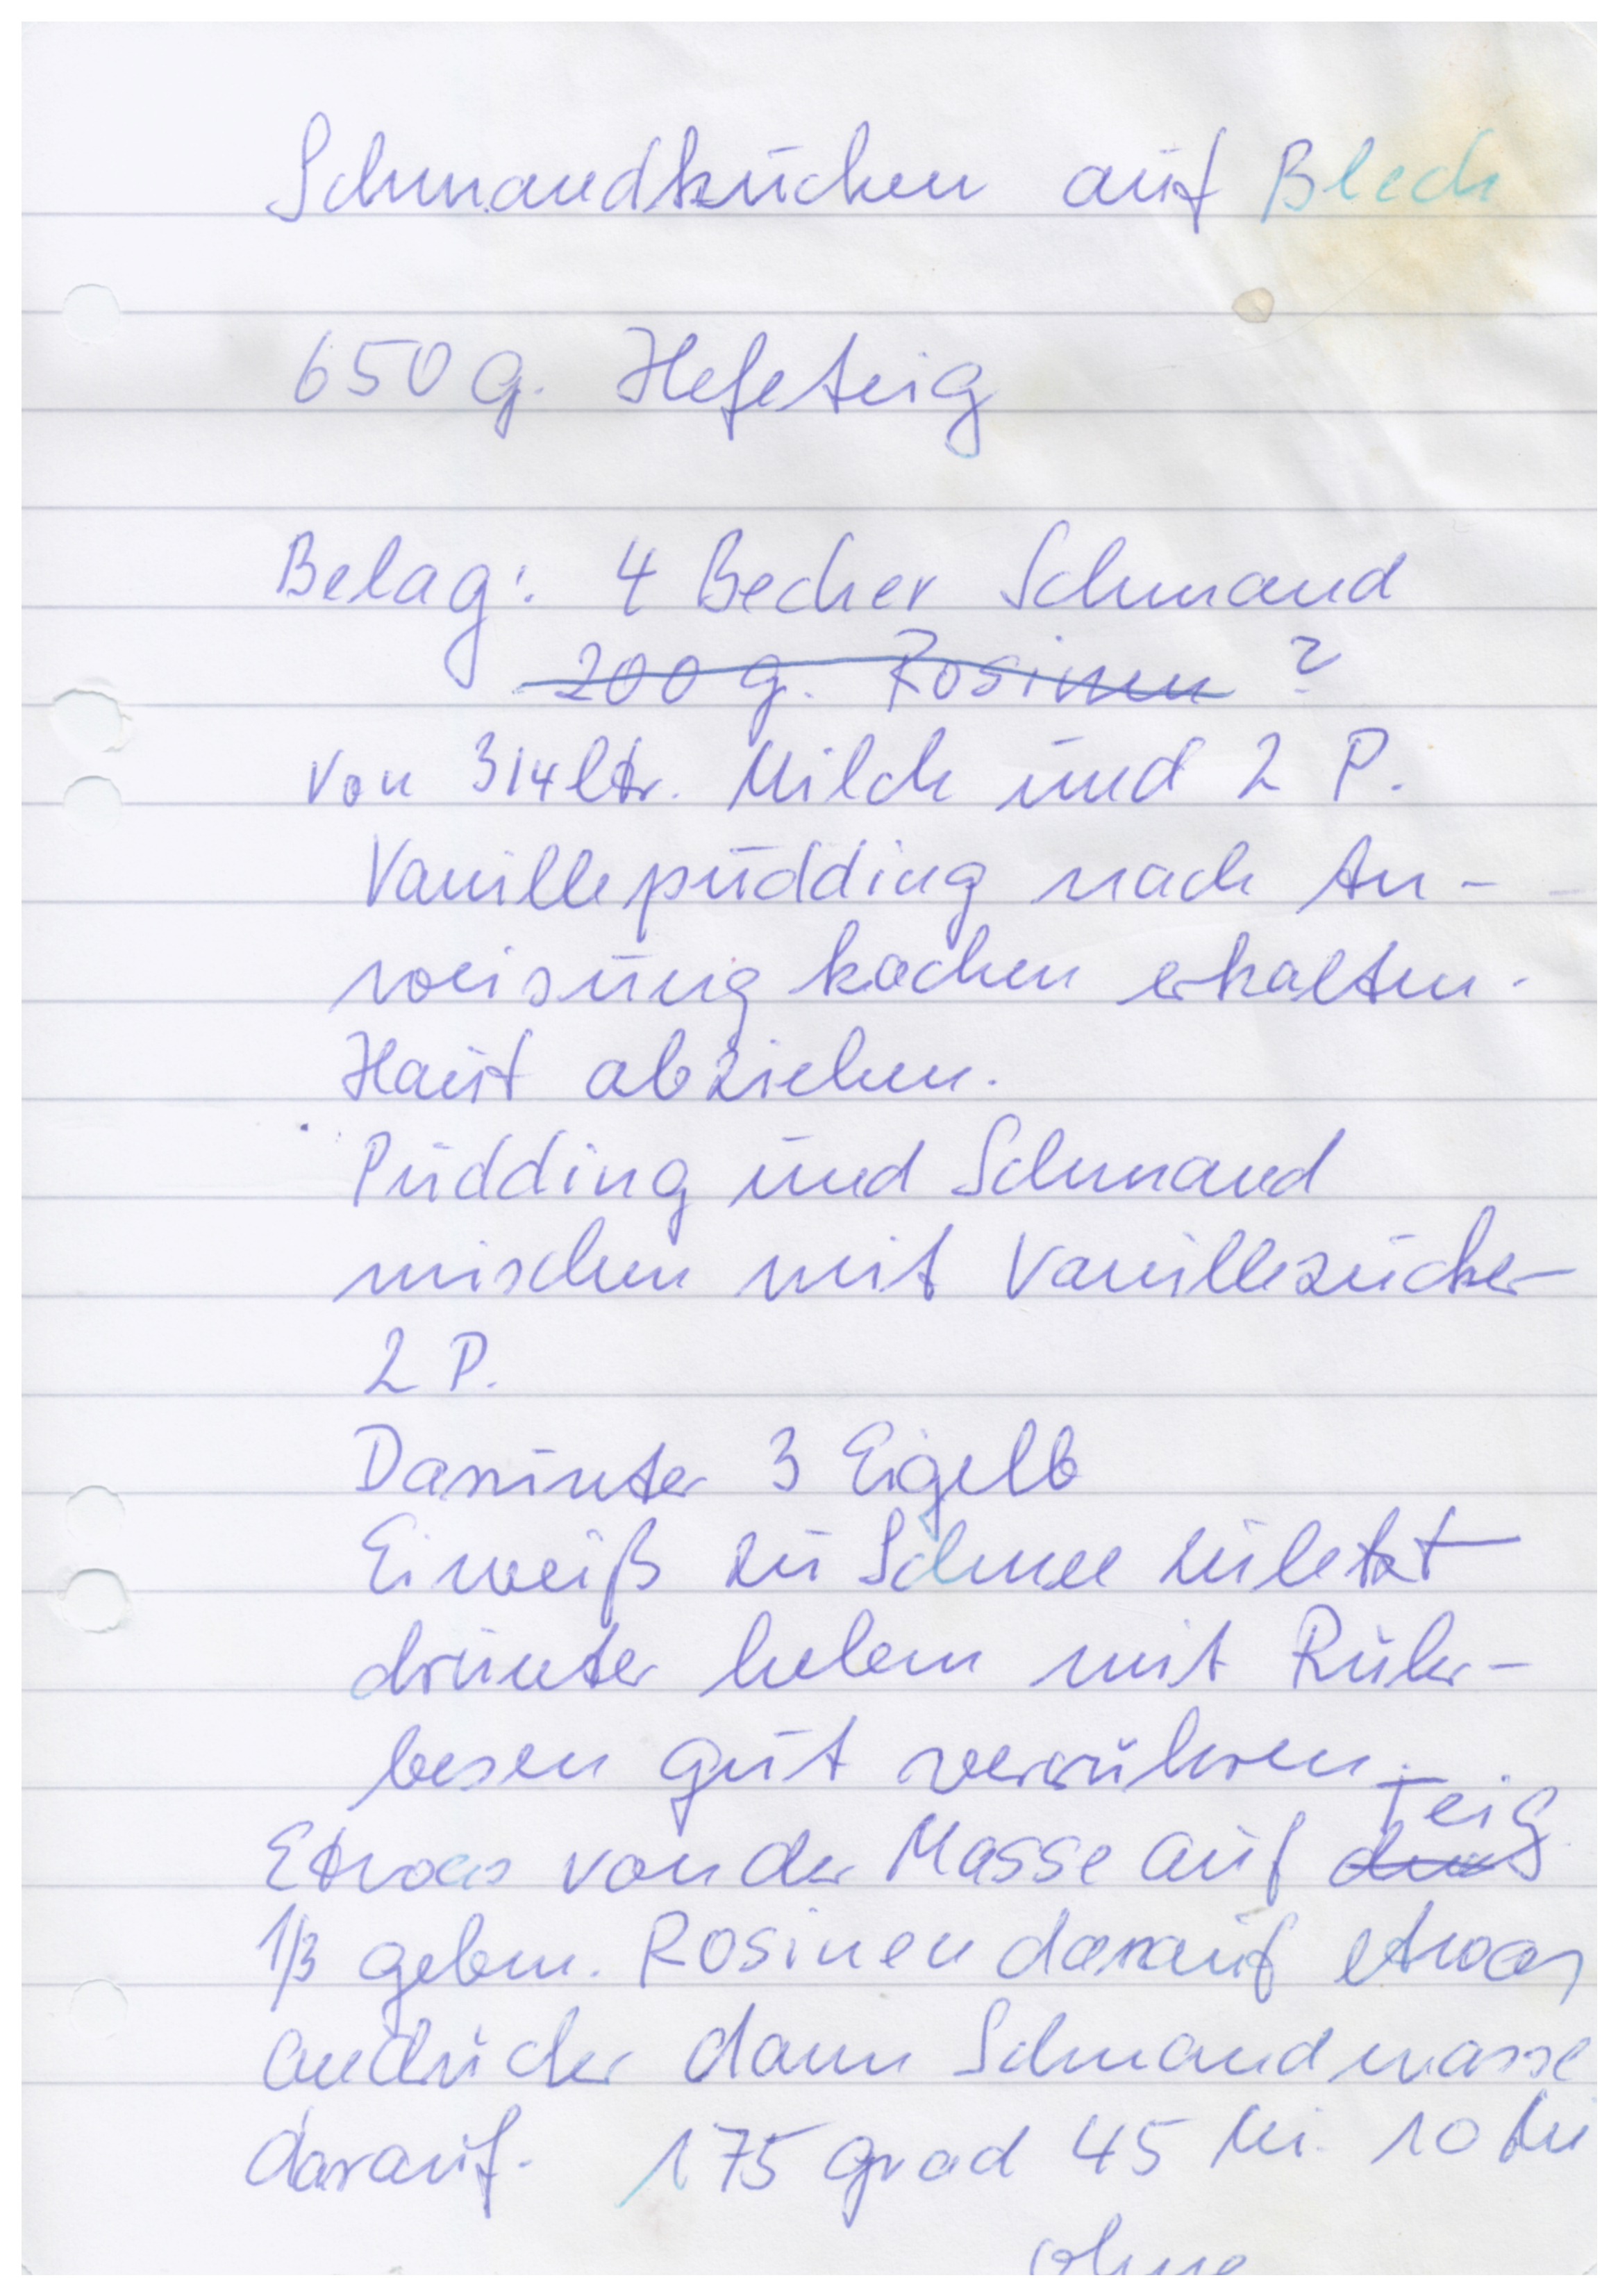 Schmandkuchen auf Blech
650 g. Hefeteig
Belag: 4 Becher Schmand
200 g. Rosinen ?
von 3/4 ltr. Milch und 2 P.
Vanillepudding nach An-
weisung kochen erkalten.
Haut abziehen.
Pudding und Schmand
mischen mit Vanillezucker
2 P.
Darunter 3 Eigelb
Eiweiß zu Schnee zuletzt
drunter heben mit Rühr-
besen gut verrühren.
Teig
Etwas von der Masse auf
1/3 geben. Rosinen darauf etwas
andrücken dann Schmandmasse
darauf. 175 grad 45 Mi. 10 Mi
ohne